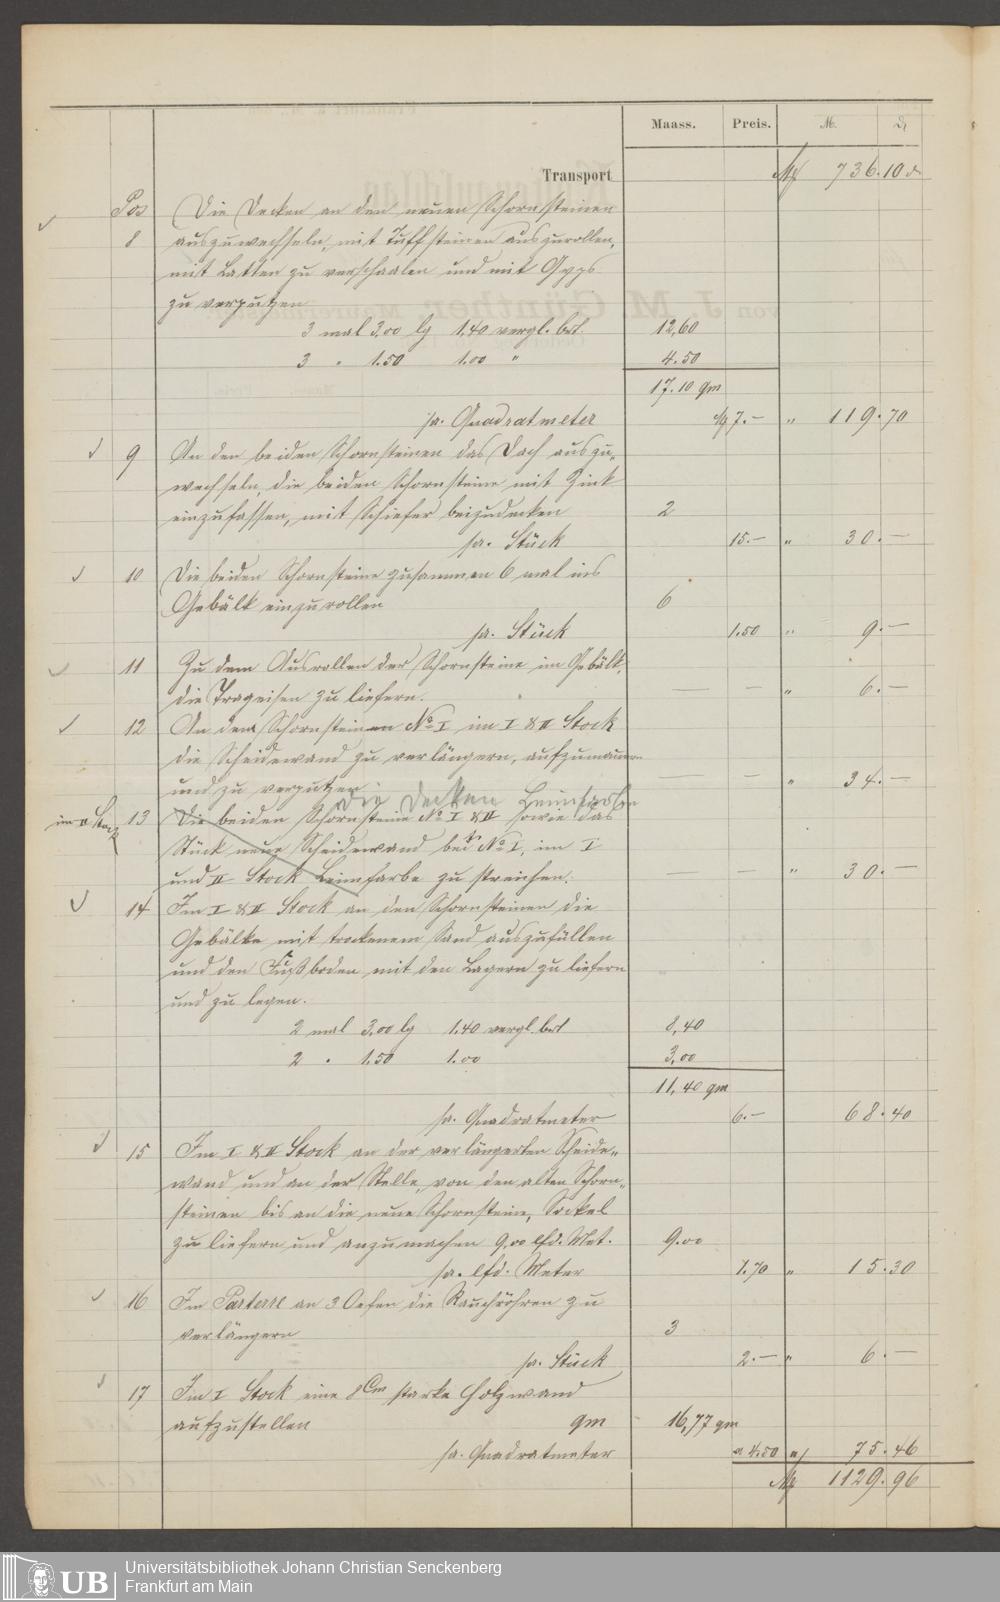 Maass. Preis. M. ₰
Transport M 736.10 ₰
Pos Die Decken an den neuen Schornsteinen
8 auszuwechseln, mit Tuffsteinen auszurollen,
mit Latten zu verschaalen und mit Gyps
zu verputzen
3 mal 3,00 lg 1.40 vergl. brt 12,60
3 " 1.50 1.00 " 4.50
17.10 qm
pr. Quadratmeter 7.— " 119.70
9 An den beiden Schornsteinen das Dach auszu„
wechseln, die beiden Schornsteine mit Zink
einzufassen, mit Schiefer beizudecken 2
pr. Stück 15.— " 30.—
10 Die beiden Schornsteine zusammen 6 mal ins
Gebälk einzurollen 6
pr. Stück 1.50 " 9.—
11 Zu dem Ausrollen der Schornsteine im Gebälk,
die Trageisen zu liefern. — — " 6.—
12 An dem Schornsteinen No I im I & II Stock
die Scheidewand zu verlängern, aufzumauern
und zu verputzen — — " 34.—
Die Decken Leimfarbe
im II Stock 13 Die beiden Schornsteine No I & II sowie das
Stück neue Scheidewand bei No I, im I
und II Stock Leimfarbe zu streichen. — — " 30.—
14 Im I & II Stock an den Schornsteinen die
Gebälke mit trockenem Sand auszufüllen
und den Fußboden mit den Lagern zu liefern
und zu legen.
2 mal 3,00 lg 1.40 vergl. brt 8,40
2 " 1.50 1.00 3,00
11,40 qm
pr. Quadratmeter 6.— 68.40
15 Im I & II Stock an der verlängerten Scheide„
wand und an der Stelle, von den alten Schorn„
steinen bis an die neue Schornsteine, Sockel
zu liefern und anzumachen 9,00 lfd. Met. 9.00
pr. lfd. Meter 1.70 " 15.30
16 Im Parterre an 3 Oefen die Rauchröhren zu
verlängern 3
pr. Stück 2.— " 6.—
17 Im I Stock eine 8 Cm starke Holzwand
aufzustellen qm 16,77 qm
pr. Quadratmeter a 4.50 " 75.46
M 1129.96
UB Universitätsbibliothek Johann Christian Senckenberg
Frankfurt am Main